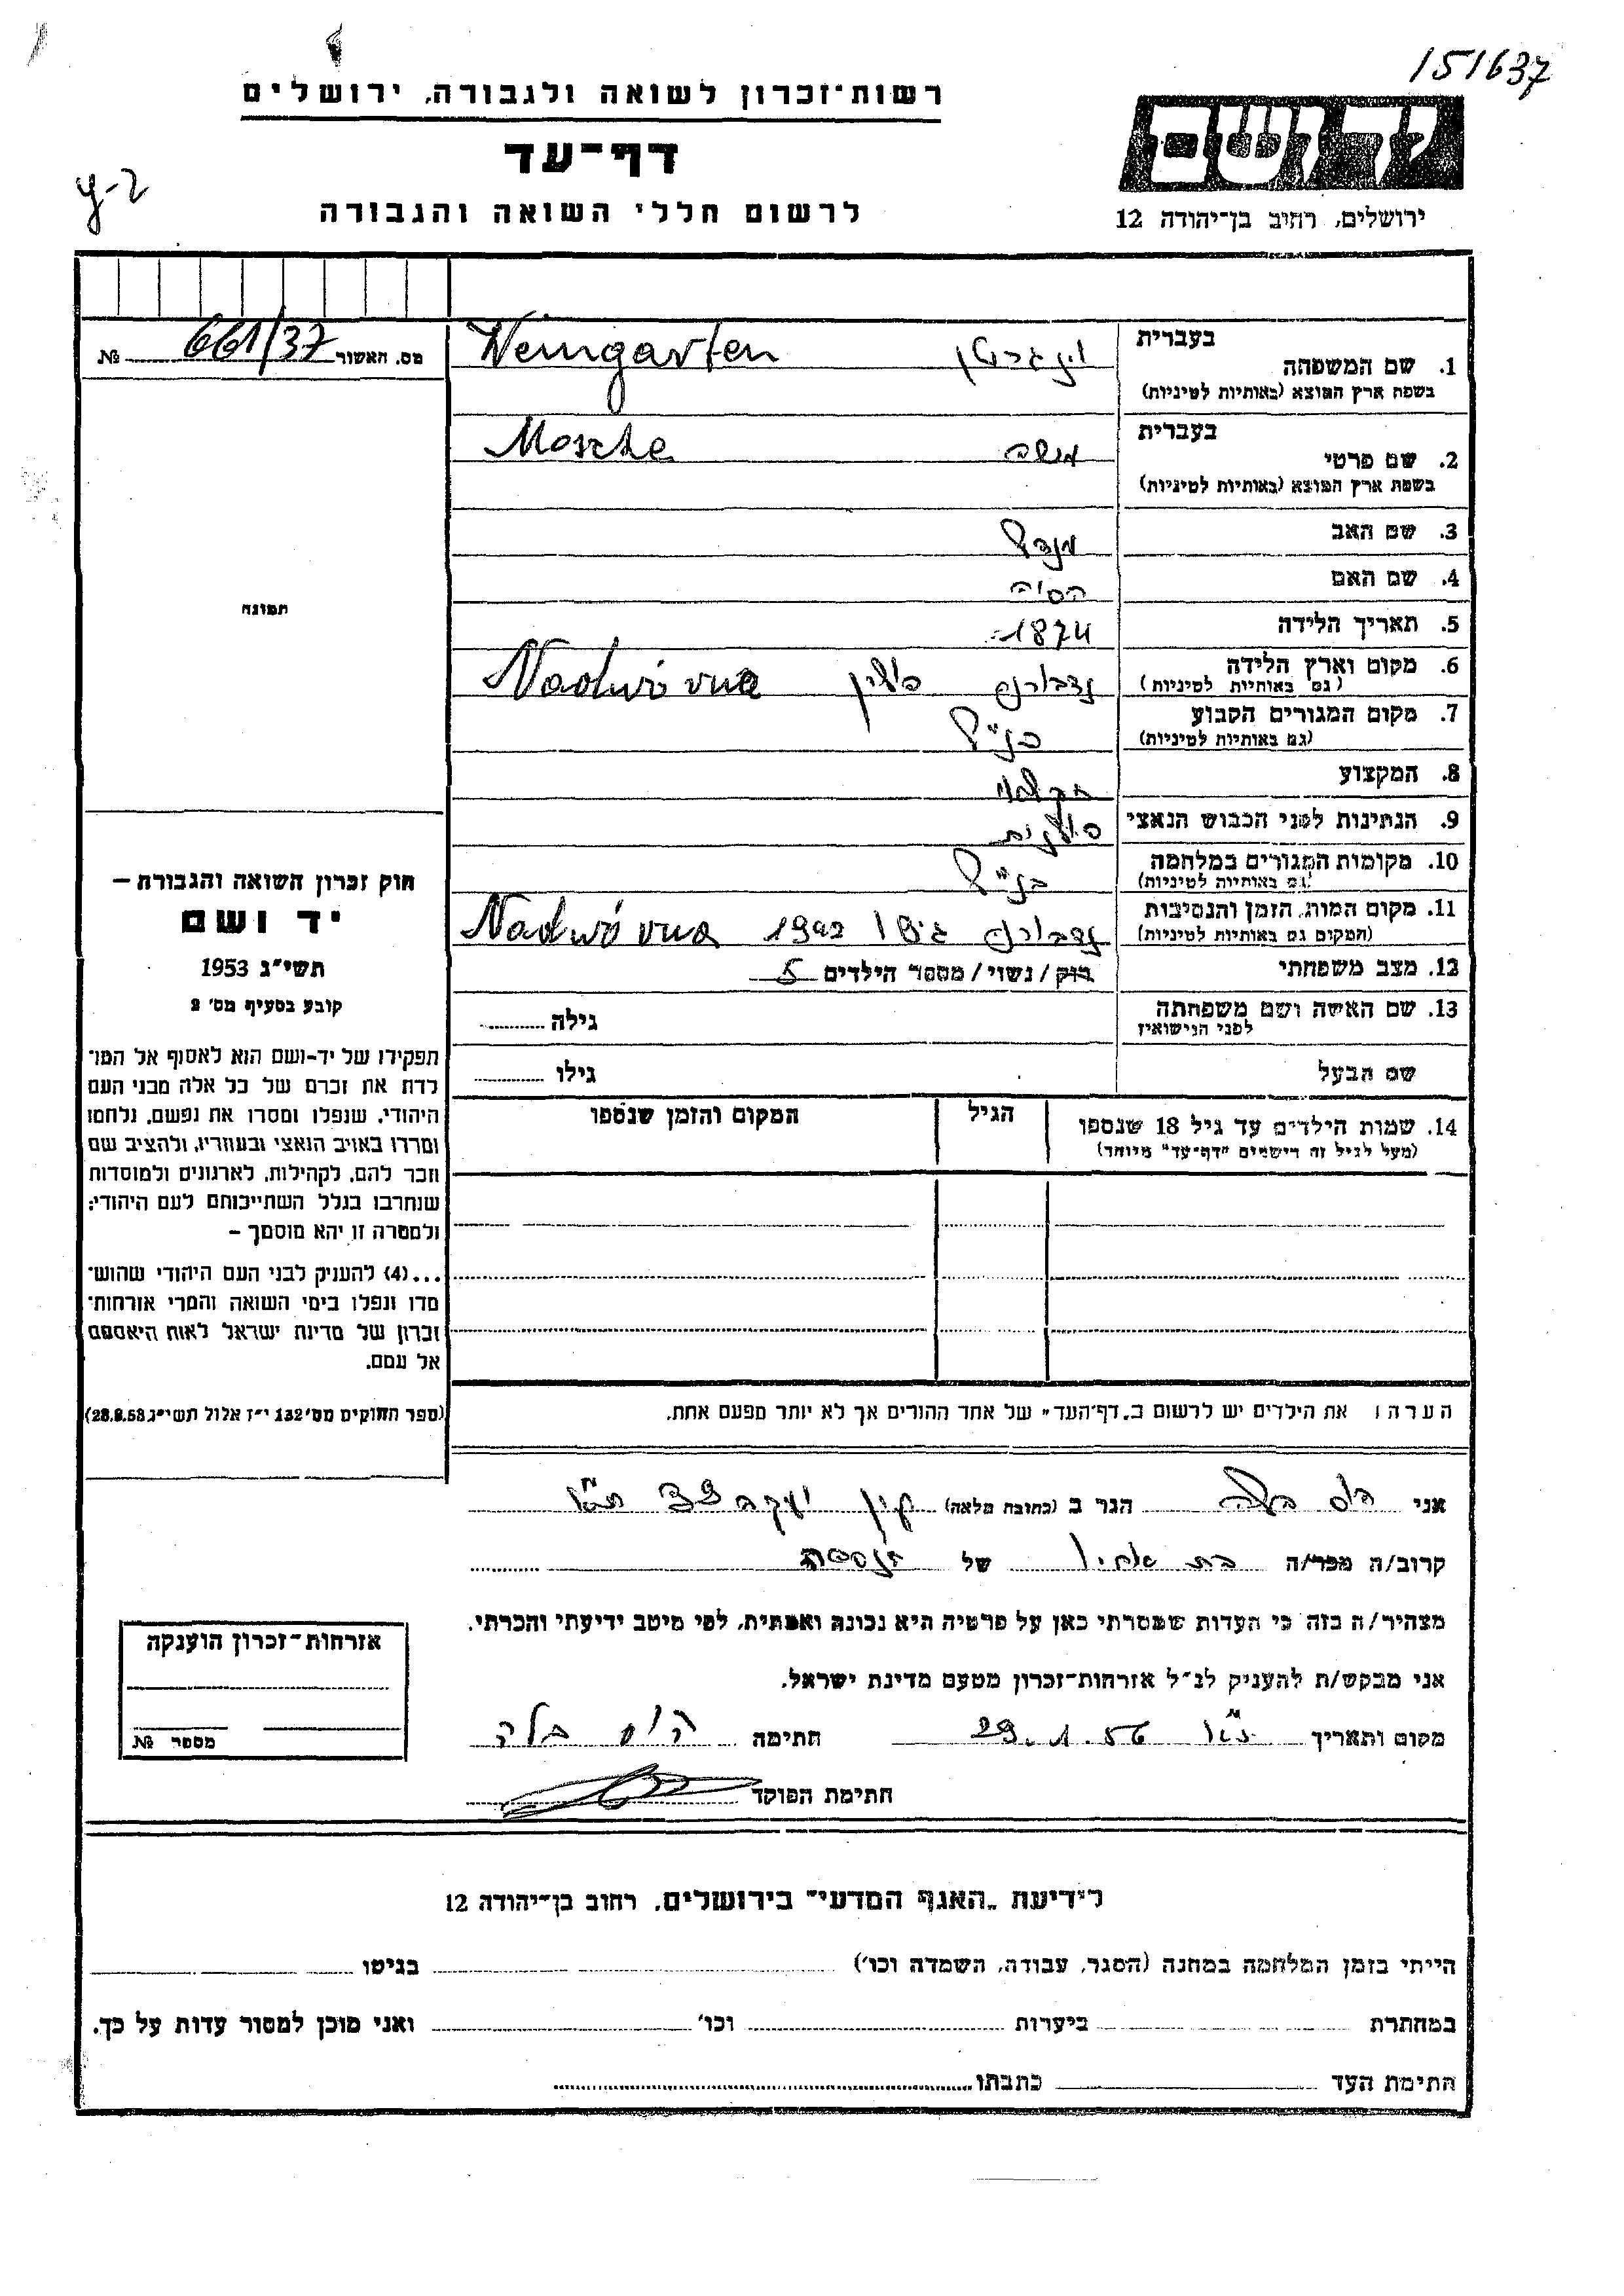 151637
רשות־זכרון לשואה ולגבורה, ירושלים
דף־עד
לרשום חללי השואה והגבורה
יד ושם
ירושלים, רחוב בן־יהודה 12
מס. האשור 661/37 №
בעברית
1. שם המשפחה וינגרטן Weingarten
בשפת ארץ המוצא (באותיות לטיניות)
בעברית
2. שם פרטי משה Mosche
בשפת ארץ המוצא (באותיות לטיניות)
3. שם האב מנדל
4. שם האם הסיה
5. תאריך הלידה 1874
6. מקום וארץ הלידה נדבורנה פולין Nadwórna
(גם באותיות לטיניות)
7. מקום המגורים הקבוע כנ״ל
(גם באותיות לטיניות)
8. המקצוע חקלאי
9. הנתינות לפני הכבוש הנאצי פולנית
10. מקומות המגורים במלחמה כנ״ל
(גם באותיות לטיניות)
11. מקום המות, הזמן והנסיבות נדבורנה גיטו 1942 Nadwórna
(המקום גם באותיות לטיניות)
12. מצב משפחתי רוק/נשוי/מספר הילדים 5
13. שם האשה ושם משפחתה גילה
לפני הנישואין
שם הבעל גילו
14. שמות הילדים עד גיל 18 שנספו הגיל המקום והזמן שנספו
(מעל לגיל זה רישמים "דף־עד" מיוחד)
הערה: את הילדים יש לרשום ב„דף־העד" של אחד ההורים אך לא יותר מפעם אחת.
תמונה
חוק זכרון השואה והגבורה –
יד ושם
תשי״ג 1953
קובע בסעיף מס׳ 2
תפקידו של יד-ושם הוא לאסוף אל המו־
לדת את זכרם של כל אלה מבני העם
היהודי, שנפלו ומסרו את נפשם, נלחמו
ומרדו באויב הנאצי ובעוזריו, ולהציב שם
וזכר להם, לקהילות, לארגונים ולמוסדות
שנחרבו בגלל השתייכותם לעם היהודי;
ולמטרה זו יהא מוסמך –
...(4) להעניק לבני העם היהודי שהוש־
מדו ונפלו בימי השואה והמרי אזרחות־
זכרון של מדינת ישראל לאות היאספם
אל עמם.
(ספר החוקים מס׳ 132 י״ז אלול תשי״ג 28.8.53)
אני הס בלה הגר ב (כתובת מלאה) יעקב
קרוב/ה מכר/ה בת אחיו של הנספה
מצהיר/ה בזה כי העדות שמסרתי כאן על פרטיה היא נכונה ואמתית, לפי מיטב ידיעתי והכרתי.
אני מבקש/ת להעניק לנ״ל אזרחות־זכרון מטעם מדינת ישראל.
מקום ותאריך ת״א 29.1.56 חתימה היס בלה
חתימת הפוקד
אזרחות־זכרון הוענקה
מספר №
לידיעת „האגף המדעי" בירושלים, רחוב בן־יהודה 12
הייתי בזמן המלחמה במחנה (הסגר, עבודה, השמדה וכו׳) בגיטו
במחתרת ביערות וכו׳ ואני מוכן למסור עדות על כך.
חתימת העד כתבתו